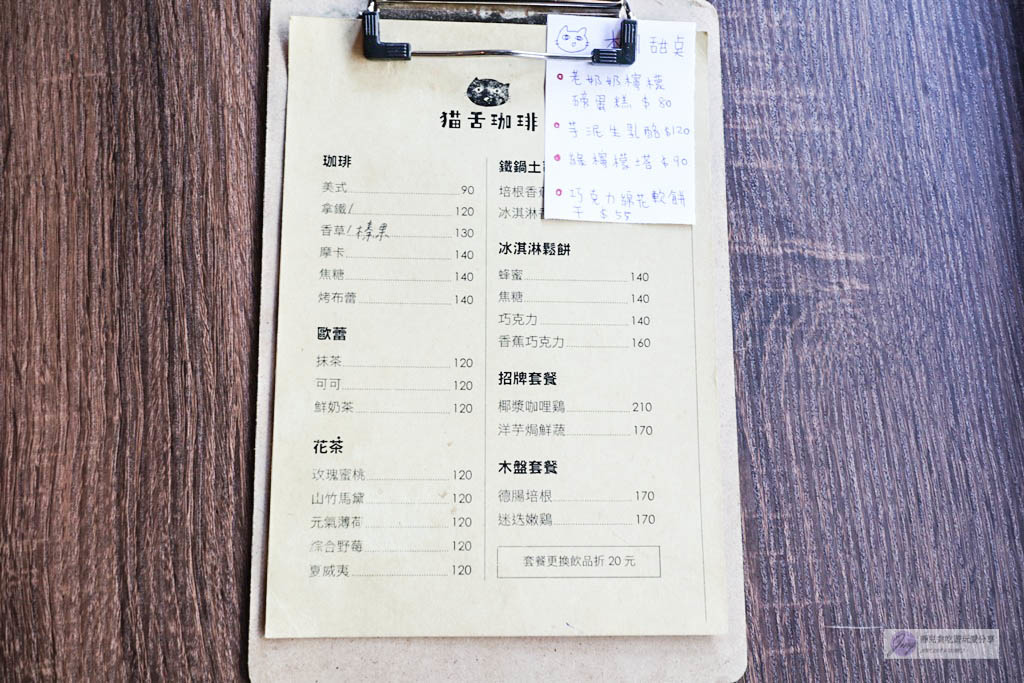 甜桌
老奶奶檸檬
磅蛋糕 $80
芋泥生乳酪 $120
綠檸檬塔 $90
巧克力棉花軟餅
干 $55
猫舌珈琲
珈琲
美式 90
拿鐵/ 120
香草/榛果 130
摩卡 140
焦糖 140
烤布蕾 140
歐蕾
抹茶 120
可可 120
鮮奶茶 120
花茶
玫瑰蜜桃 120
山竹馬黛 120
元氣薄荷 120
綜合野莓 120
夏威夷 120
鐵鍋土
培根香
冰淇淋
冰淇淋鬆餅
蜂蜜 140
焦糖 140
巧克力 140
香蕉巧克力 160
招牌套餐
椰漿咖哩鷄 210
洋芋焗鮮蔬 170
木盤套餐
德腸培根 170
迷迭嫩鷄 170
套餐更換飲品折 20 元